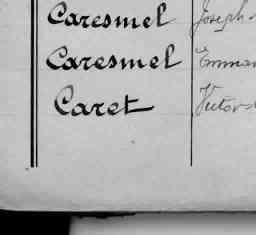 Caresmel Joseph
Caresmel Emman
Caret Victor